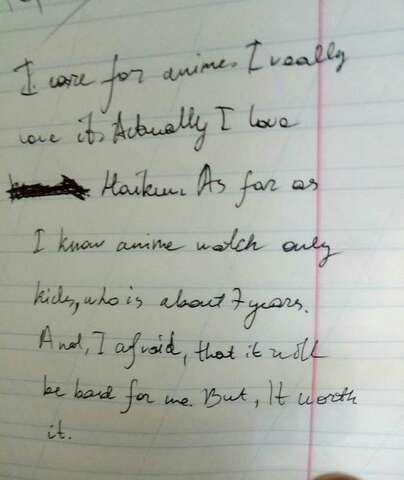 I care for anime. I really
love it. Actually I love
Haikuu. As far as
I know anime watch only
kids, who is about 7 years.
And, I afraid, that it will
be bad for me. But, It worth
it.